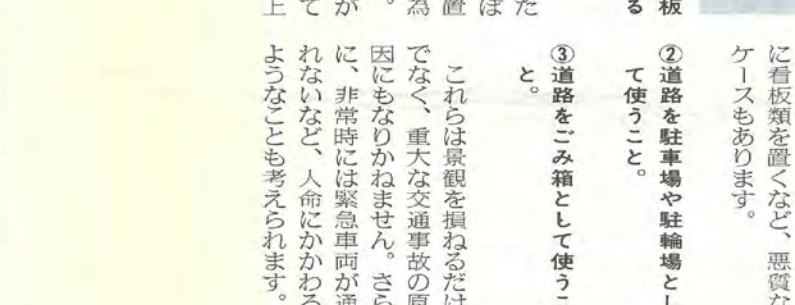 に看板類を置くなど、悪質な
ケースもあります。
②道路を駐車場や駐輪場とし
て使うこと。
③道路をごみ箱として使うこ
と。
これらは景観を損ねるだけ
でなく、重大な交通事故の原
因にもなりかねません。さら
に、非常時には緊急車両が通
れないなど、人命にかかわる
ようなことも考えられます。
板
る
た
ぼ
置
為
。
が
て
上